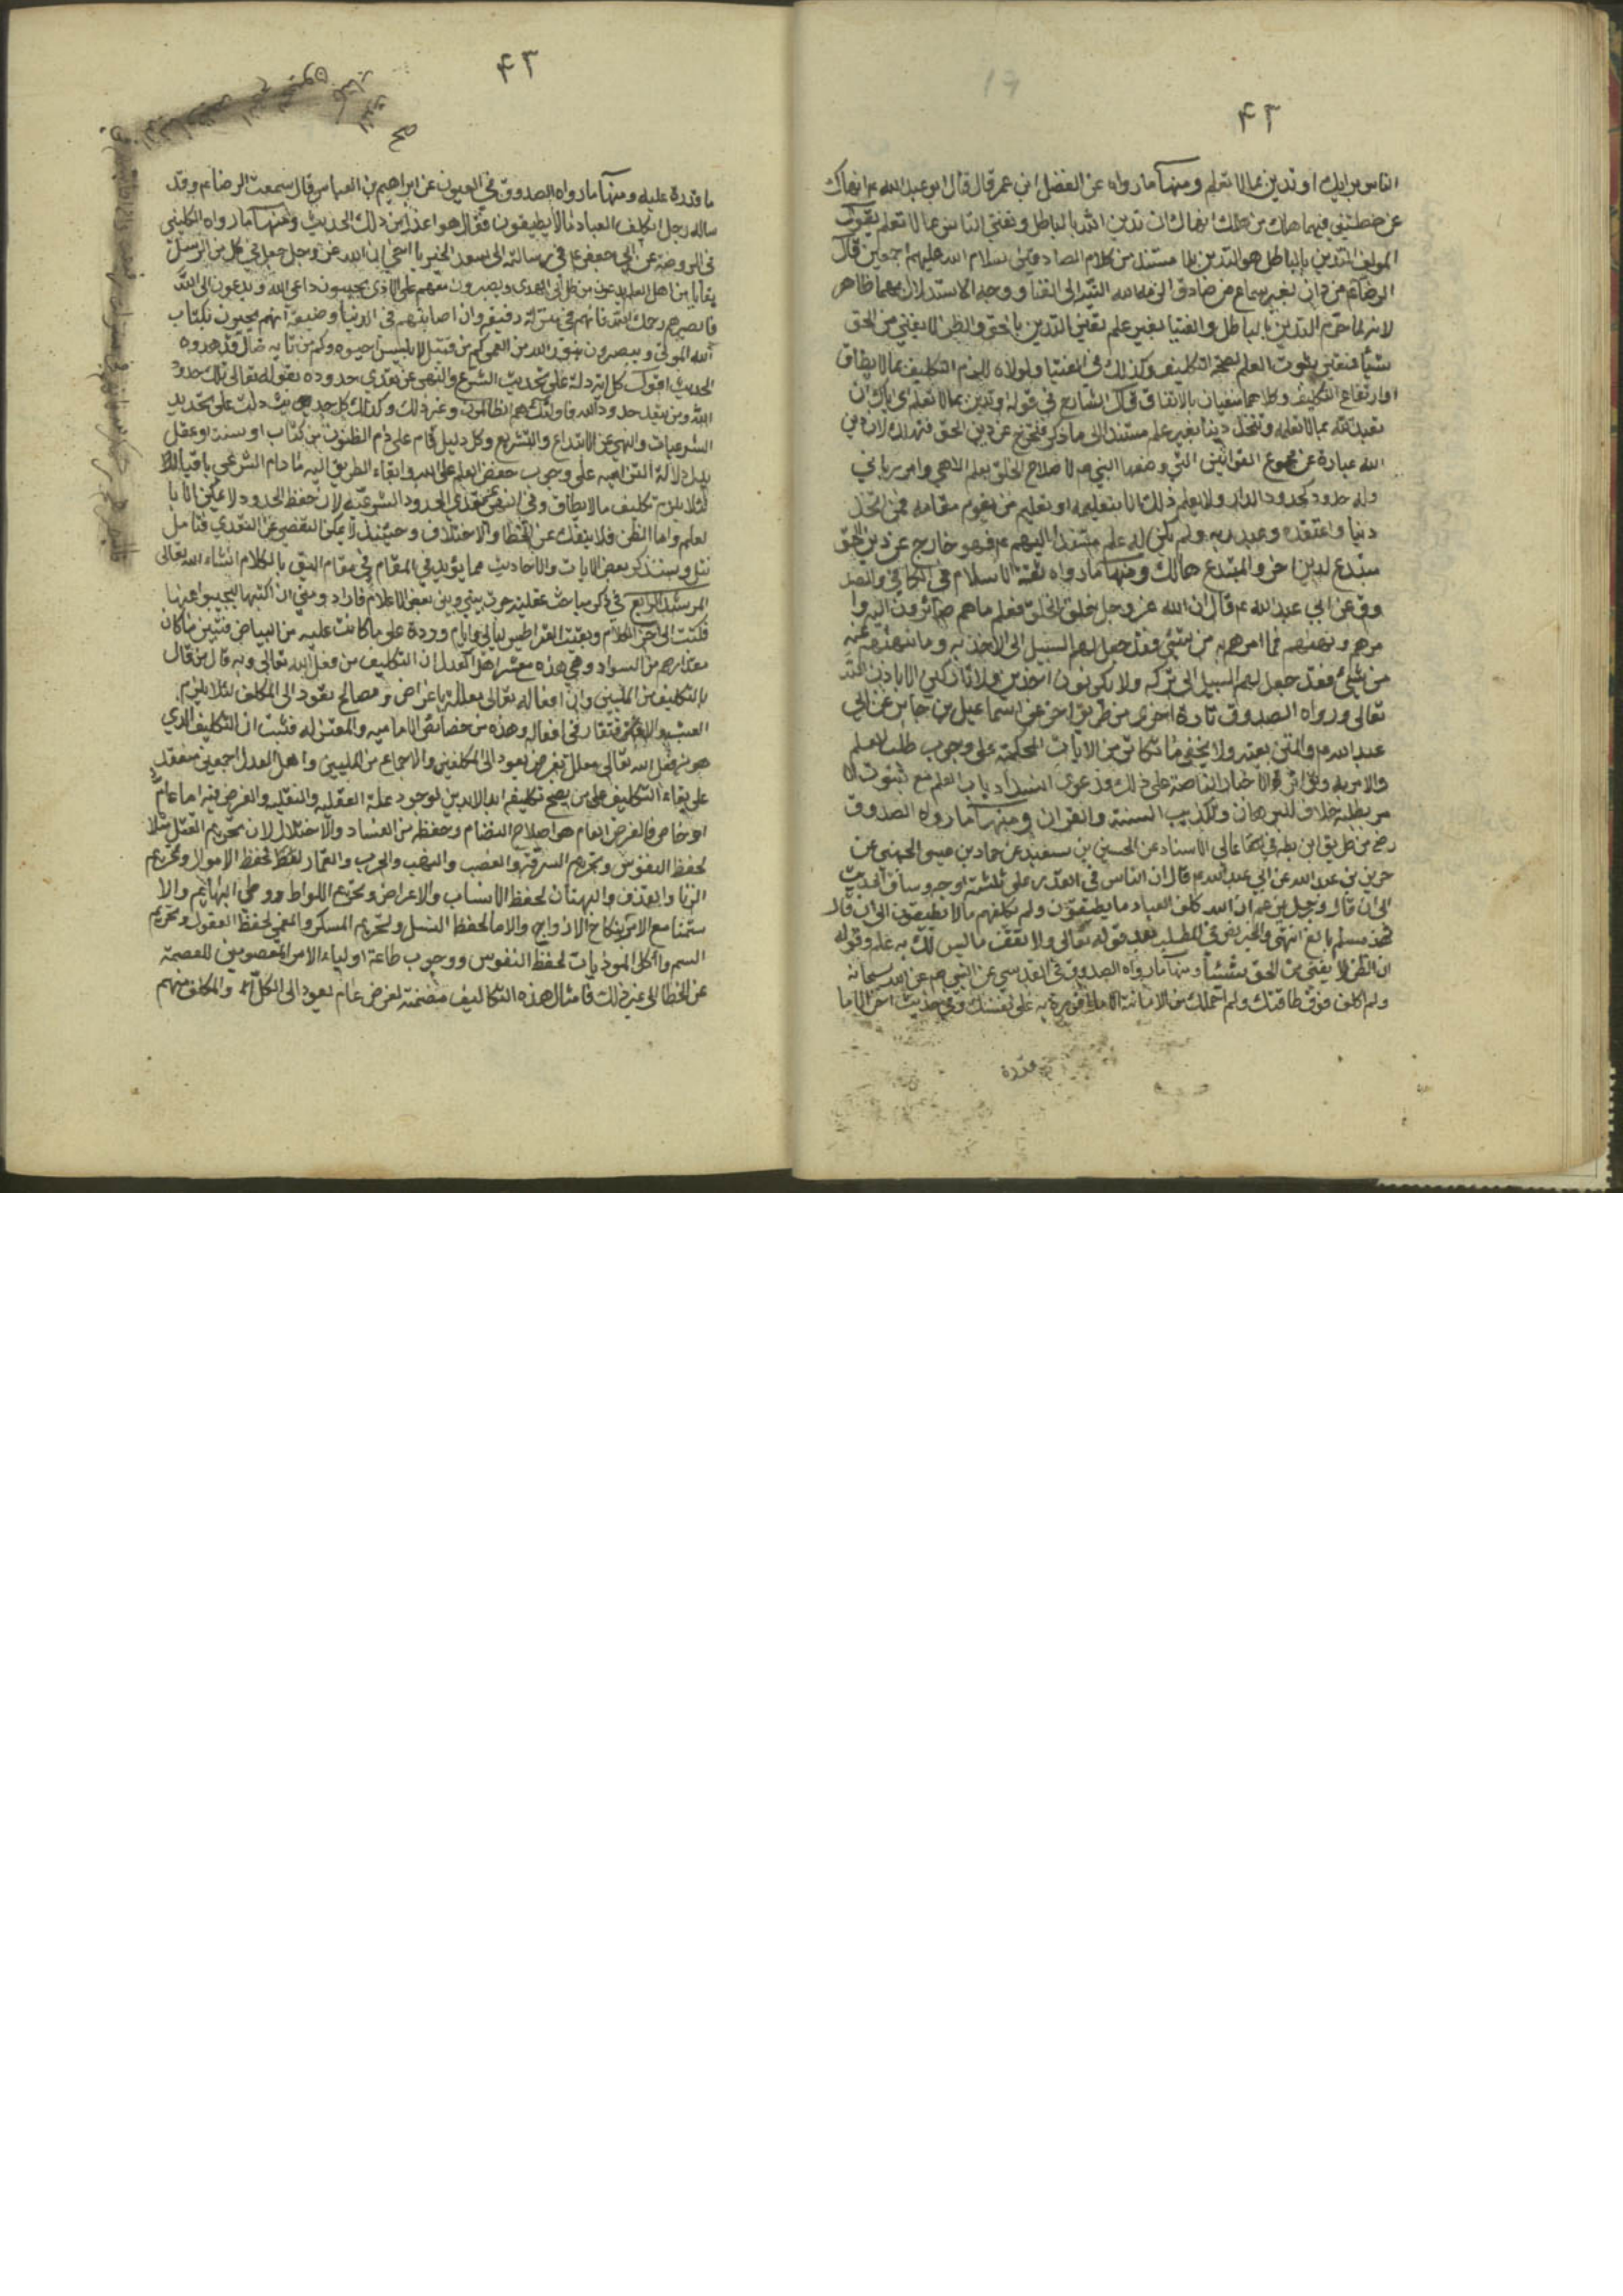 ۴۲
الناس برايك او تدين بما لا تعلم ومنها ما رواه عن المفضل ابن عمر قال قال ابو عبد الله ع انهاك
عن خصلتين فيهما هلك من هلك انهاك ان تدين الله بالباطل وتفتي الناس بما لا تعلم يقول
المولف التدين بالباطل هو التدين بلا مستند من كلام الصادقين سلام الله عليهم اجمعين قال
الرضا ع من دان بغير سماع من صادق الزمه الله التيه الى الفنا ووجه الاستدلال بهما ظاهر
لانه لما حرم التدين بالباطل والفتيا بغير علم تعين التدين بالحق والظن لا يغني من الحق
شيئا فتعين ثبوت العلم لصحة التكليف وكذلك في الفتيا ولولاه للزم التكليف بما لا يطاق
او ارتفاع التكليف وكلاهما منفيان بالاتفاق قال الشارع في قوله وتدين بما لا تعلم اي اياك ان
تعبد الله بما لا تعلمه وتنتحل دينا بغير علم مستند الى ما ذكر فتخرج عن دين الحق فتهلك لان دين
الله عبارة عن مجموع القوانين التي وضعها النبي ص لاصلاح الخلق بعلم الاهي وامر رباني
وله حدود كحدود الدار ولا يعلم ذلك الا بتعليمه او تعليم من يقوم مقامه فمن اتخذ
دينا واعتقده وعبد به ولم يكن له علم مستند اليهم ع فهو خارج عن دين الحق
مبتدع لدين اخر والمبتدع هالك ومنها ما رواه ثقة الاسلام في الكافي والصد
وق عن ابي عبد الله ع قال ان الله عز وجل خلق الخلق فعلم ما هم صائرون اليه وا
مرهم ونهاهم فما امرهم به من شئ فقد جعل لهم السبيل الى الاخذ به وما نهاهم عنه
من شئ فقد جعل لهم السبيل الى تركه ولا يكونون اخذين ولا تاركين الا باذن الله
تعالى ورواه الصدوق تارة اخرى من طريق اخر عن اسماعيل بن جابر عن ابي
عبد الله ع والمتن بعينه ولا يخفى ما تكاثر من الايات المحكمة على وجوب طلب العلم
والامر به وتواتر الاخبار الناصة على ذلك ودعوى انسداد باب العلم مع ثبوت الا
مر بطلبه خلاف للبرهان وتكذيب السنة والقران ومنها ما رواه الصدوق
رضي من طريق ابن بطة في عالي الاسناد عن الحسين بن سعيد عن حماد بن عيسى الجهني عن
حريز بن عبد الله عن ابي عبد الله ع قال ان الناس في القدر على ثلثة اوجه وساق الحديث
الى ان قال ورجل يزعم ان الله كلف العباد ما يطيقون ولم يكلفهم ما لا يطيقون الى ان قال
فهذا مسلم بالغ انتهى والخبر نص في المطلب بعد قوله تعالى ولا تقف ما ليس لك به علم وقوله
ان الظن لا يغني من الحق شيئا ومنها ما رواه الصدوق في القدسي عن النبي ص عن الله سبحانه
ولم اكلف فوق طاقتك ولم احملك من الامانة الا ما به على نفسك وفي حديث اخر الا ما
قدرة
۴۳
ما قدرة عليه ومنها ما رواه الصدوق في العيون عن ابراهيم بن العباس قال سمعت الرضا ع وقد
ساله رجل ايكلف العباد ما لا يطيقون فقال هو اعدل من ذلك الحديث ومنها ما رواه الكليني
في الروضة عن ابي جعفر ع في رسالته الى سعد الخير يا اخي ان الله عز وجل جعل في كل من الرسل
بقايا من اهل العلم يدعون من ضل الى الهدى ويصبرون معهم على الاذى يجيبون داعي الله ويدعون الى الله
فابصرهم رحمك الله فانهم في منزلة رفيعة وان اصابتهم في الدنيا وضيعة انهم يحيون بكتاب
الله الموتى ويبصرون بنور الله من العمى كم من قتيل لابليس احيوه وكم من تايه ضال قد هدوه
الحديث اقول كل اية دلة على تحديد الشرع والنهى عن تعدي حدوده بقوله تعالى تلك حدود
الله ومن يتعد حدود الله فاولئك هم الظالمون وغير ذلك وكذلك كل حديث دلت على تحديد
الشرعيات والنهي عن الابتداع والتشريع وكل دليل قام على ذم الظنون من كتاب او سنة او عقل
يدل دلالة التزاميه على وجوب العلم على الله وابقاء الطريق اليه ما دام الشرعي باقيا
لئلا يلزم تكليف ما لا يطاق وفي النهي عن تعدي الحدود الشرعيه لان حفظ الحدود لا يمكن الا با
لعلم واما الظن فلا ينفك عن الخطا والاختلاف وحينئذ لا يمكن التفصي عن التعدي فتامل
تنل وسنذكر بعض الايات والاحاديث مما يؤيد في المقام في مقام اليق بالكلام انشاء الله تعالى
المرشد الرابع في ذكر مباحث عقلية جرت بيني وبين بعض الاعلام فاراد مني ان اكتبها ليجيبوا عنها
فكتبت الى اخر الكلام وبقيت القراطيس ليالي وايام وردة على ما كانت عليه من البياض فتبين ما كان
مقدارهم من السواد وهي هذه معشر اهل العدل ان التكليف من فعل الله تعالى وبه قال من قال
بالتكليف من المليين وان افعاله تعالى معللة باغراض ومصالح تعود الى المكلف لئلا يلزم
العبث والافتقار في افعاله وهذه من خصائص الاماميه والمعتزله فثبت ان التكليف الذي
هو من فعل الله تعالى معلل بغرض يعود الى المكلفين والاجماع من المليين واهل العدل اجمعين منعقد
على بقاء التكليف على من يصح تكليفه ابد الابدين لوجود علة العقليه والنقليه والغرض فيه اما عام
او خاص فالغرض العام هو اصلاح النظام وحفظه من الفساد والاختلال لان تحريم القتل مثلا
لحفظ النفوس وتحريم السرقة والغصب والنهب والحرب والقمار لحفظ الاموال وتحريم
الزنا والقذف والبهتان لحفظ الانساب والاعراض وتحريم اللواط ووطى البهائم والا
ستمنا مع الامر بنكاح الازواج والاما لحفظ النسل وتحريم المسكر والمغمي لحفظ العقول وتحريم
السم واكل الموذيات لحفظ النفوس ووجوب طاعة اولياء الامر المعصومين للعصمة
عن الخطا الى غير ذلك فامثال هذه التكاليف متضمنة لغرض عام يعود الى الكل والمكلف منهم